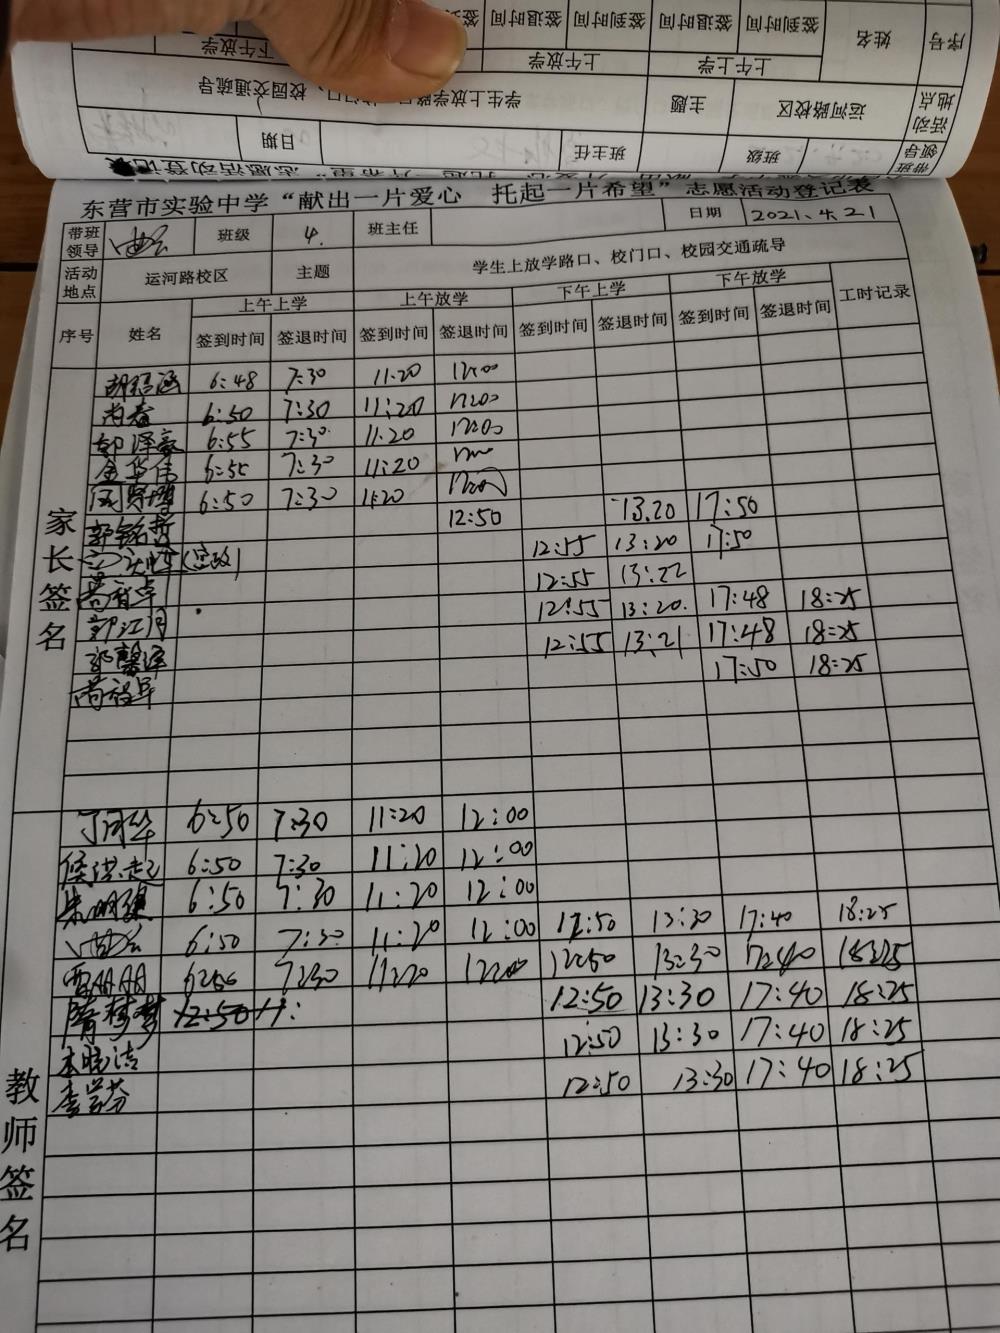 序号 姓名 签到时间 签退时间 签到时间 签退时间 签
上午上学 上午放学 下午放学
活动地点 运河路校区 主题 学生上放学路口、校门口、校园交通疏导
带班领导 班级 班主任 日期
志愿活动登记
东营市实验中学“献出一片爱心 托起一片希望”志愿活动登记表
带班领导 班级 4. 班主任 日期 2021.4.21
活动地点 运河路校区 主题 学生上放学路口、校门口、校园交通疏导
序号 姓名 上午上学 上午放学 下午上学 下午放学 工时记录
签到时间 签退时间 签到时间 签退时间 签到时间 签退时间 签到时间 签退时间
家长签名
6:48 7:30 11:20 12:00
6:50 7:30 11:20 12:00
郭泽豪 6:55 7:30 11:20 12:00
金华伟 6:55 7:30 11:20
6:50 7:30 11:20 12:00
郭铭哲 12:50 13.20 17:50
12:55 13:20 17:50
12:55 13:22
郭江月 12:55 13:20 17:48 18:25
郭馨泽 12:55 13:21 17:48 18:25
17:50 18:25
教师签名
6:50 7:30 11:20 12:00
侯洪起 6:50 7:30 11:20 12:00
朱明建 6:50 7:30 11:20 12:00
6:50 7:30 11:20 12:00 12:50 13:30 17:40 18:25
贾朋朋 6:50 7:30 11:20 12:00 12:50 13:30 17:40 18:25
隋梦梦 12:50 12:50 13:30 17:40 18:25
李晓洁 12:50 13:30 17:40 18:25
李学芬 12:50 13:30 17:40 18:25